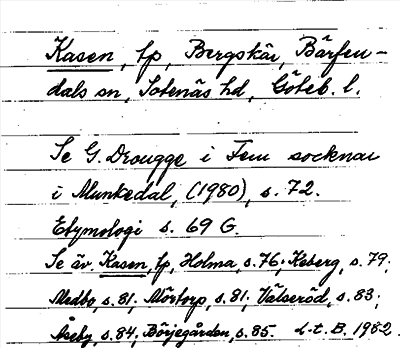 Kasen, tp, Bergskär, Bärfen-
dals sn, Sotenäs hd, Göteb. l.
Se G. Drougge i Fem socknar
i Munkedal, (1980), s. 72.
Etymologi s. 69 G.
Se äv. Kasen, tp, Holma, s. 76; Keberg, s. 79;
Medbo, s. 81; Mörtorp, s. 81; Välseröd, s. 83;
Åseby, s. 84; Börjegården, s. 85. L-t. B. 1982